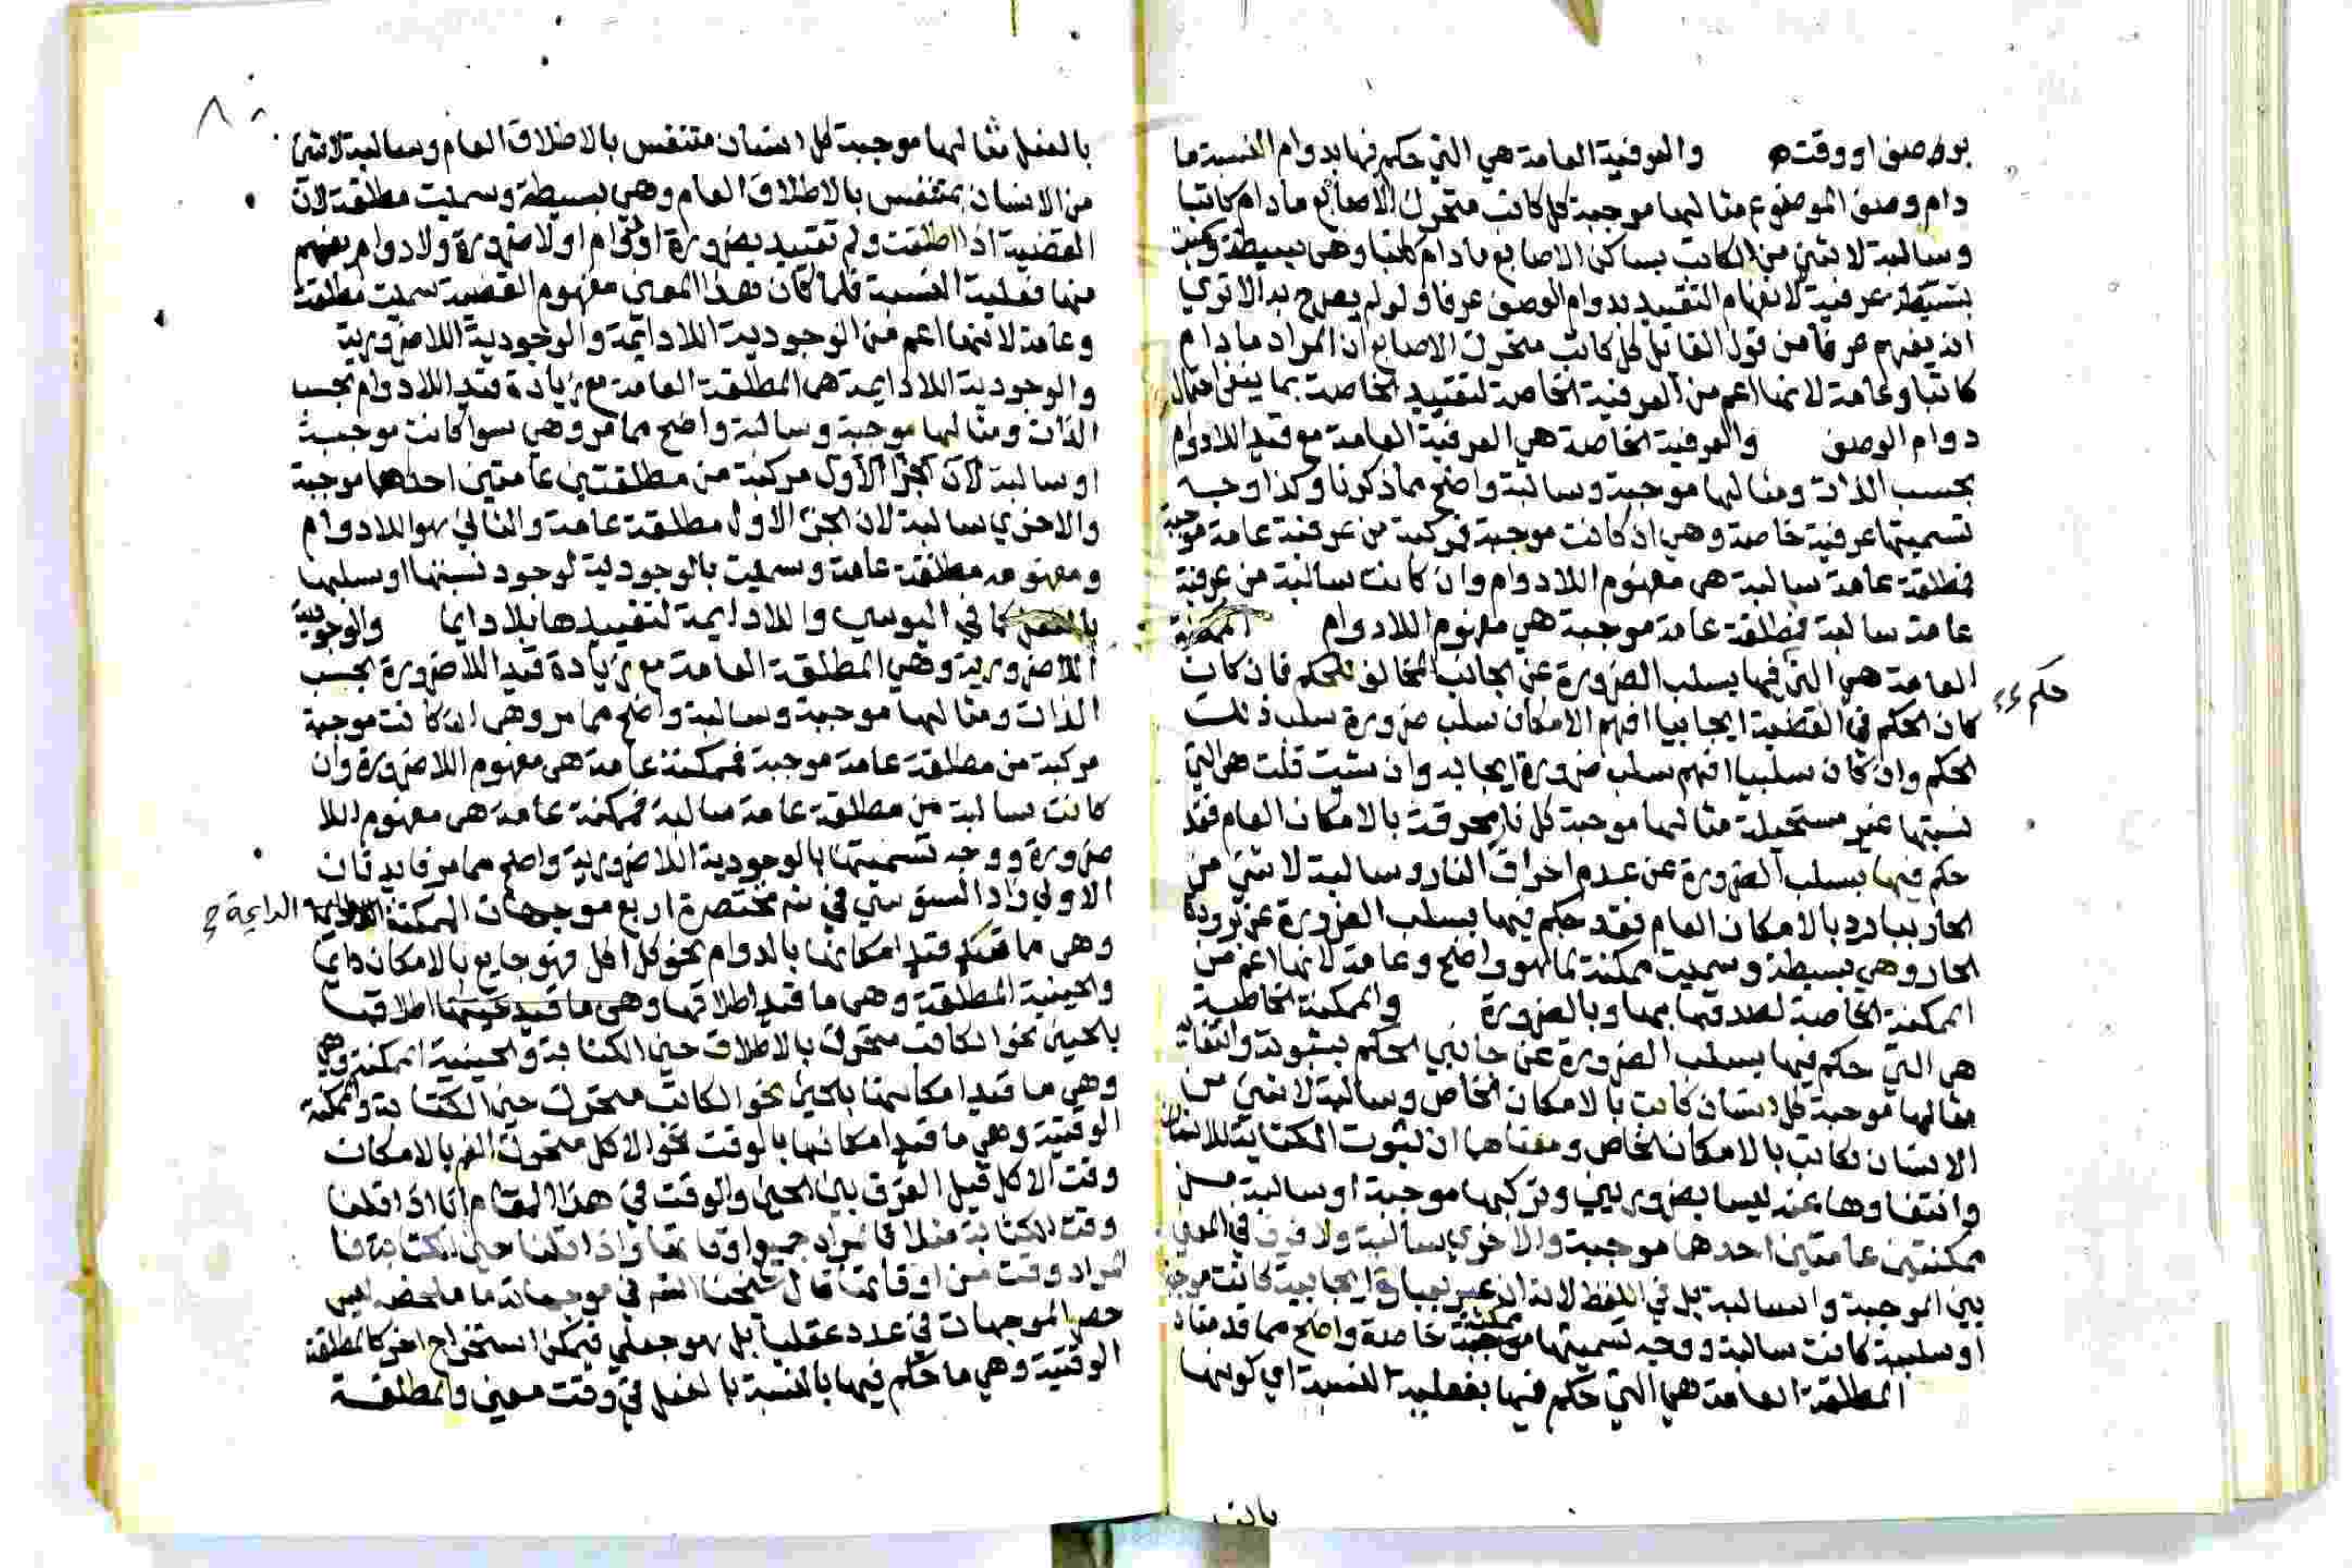 بوصف او وقت والعرفية العامة هي التي حكم فيها بدوام النسبة ما
دام وصف الموضوع مثالها موجبة كل كاتب متحرك الاصابع ما دام كاتبا
وسالبة لا شي من الكاتب بساكن الاصابع ما دام كاتبا وهي بسيطة
عرفية لانفهام التقييد بدوام الوصف عرفا ولو لم يصرح به الا تري
انه يفهم عرفا من قول القايل كل كاتب متحرك الاصابع ان المراد ما دام
كاتبا وعامة لانها اعم من العرفية الخاصة لتقييد الخاصة بما ينفي احتمال
دوام الوصف والعرفية الخاصة هي العرفية العامة مع قيد اللادوام
بحسب الذات ومثالها موجبة وسالبة واضح مما ذكرنا وكذا وجه
تسميتها عرفية خاصة وهي ان كانت موجبة فمركبة من عرفية عامة موجبة
فمطلقة عامة سالبة هي مفهوم اللادوام وان كانت سالبة من عرفية
عامة سالبة فمطلقة عامة موجبة هي مفهوم اللادوام الممكنة
العامة هي التي فيها بسلب الضرورة عن الجانب المخالف للحكم فان كان
حكم
كان الحكم في القضية ايجابيا افهم الامكان سلب ضرورة سلب ذلك
الحكم وان كان سلبيا افهم سلب ضرورة ايجابه وان شيت قلت هي التي
نسبتها غير مستحيلة مثالها موجبة كل نار محرقة بالامكان العام فقد
حكم فيها بسلب الضرورة عن عدم احراق النار وسالبة لا شي من
الحار ببارد بالامكان العام فقد حكم فيها بسلب الضرورة عن برودة
الحار وهي بسيطة وسميت ممكنة لما هو واضح وعامة لانها اعم من
الممكنة الخاصة لصدقها بها وبالضرورة والممكنة الخاصة
هي التي حكم فيها بسلب الضرورة عن جانبي الحكم بثبوته وانتفايه
مثالها موجبة كل انسان كاتب بالامكان الخاص وسالبة لا شي من
الانسان بكاتب بالامكان الخاص ومعناهما ان ثبوت الكتابة للانسان
وانتفاوها عنه ليسا بضروريين وتركبها موجبة او سالبة من
ممكنتين عامتين احدهما موجبة والاخري سالبة ولا فرق في المعني
بين الموجبة والسالبة بل في اللفظ لانه ان عبر بعبارة ايجابية كانت موجبة
او سلبية كانت سالبة ووجه تسميتها ممكنة خاصة واضح مما قدمناه
المطلقة العامة هي التي حكم فيها بفعلية النسبة اي كونها
بالفعل
٨٠
بالفعل مثالها موجبة كل انسان متنفس بالاطلاق العام وسالبة لا شي
من الانسان بمتنفس بالاطلاق العام وهي بسيطة وسميت مطلقة لان
القضية اذا اطلقت ولم تقييد بضرورة او دوام او لا ضرورة ولا دوام يفهم
منها فعلية النسبة فلما كان هذا المعني مفهوم القضية سميت مطلقة
وعامة لانها اعم من الوجودية اللادايمة والوجودية اللاضرورية
والوجودية اللادايمة هي المطلقة العامة مع زيادة قيد اللادوام بحسب
الذات ومثالها موجبة وسالبة واضح مما مر وهي سوا كانت موجبة
او سالبة لان الجزء الاول مركبة من مطلقتين عامتين احدهما موجبة
والاخري سالبة لان الجزء الاول مطلقة عامة والثاني هو اللادوام
ومفهومه مطلقة عامة وسميت بالوجودية لوجود نسبتها او سلبها
بالفعل كما في اليوسي واللادايمة لتقييدها بلا دايما والوجودية
اللاضرورية وهي المطلقة العامة مع زيادة قيد اللاضرورة بحسب
الذات ومثالها موجبة وسالبة واضح مما مر وهي ان كانت موجبة
مركبة من مطلقة عامة موجبة فممكنة عامة هي مفهوم اللاضرورة وان
كانت سالبة من مطلقة عامة سالبة فممكنة عامة هي مفهوم اللا
ضرورة ووجه تسميتها بالوجودية اللاضرورية واضح مما مر فايدتان
الاولي زاد السنوسي في شم مختصره اربع موجهات الممكنة الدايمة
وهي ما قيد امكانها بالدوام نحو كل اكل فهو جايع بالامكان دايما
والحينية المطلقة وهي ما قيد اطلاقها وهي ما قيد اطلاقها
بالحين نحو الكاتب متحرك بالاطلاق حين الكتابة والحينية الممكنة وهي
وهي ما قيد امكانها بالحين نحو الكاتب متحرك حين الكتابة والممكنة
الوقتية وهي ما قيد امكانها بالوقت نحو الاكل متحرك الفم بالامكان
وقت الاكل قيل الفرق بين الحين والوقت في هذا المقام انا اذا قلنا
وقت الكتابة مثلا فالمراد جميع اوقاتها واذا قلنا حين الكتابة فا
لمراد وقت من اوقاتها قال شيخنا القدم في موجهاته ما ملخصه ليس
حصر الموجهات في عدد عقليا بل هو جعلي فيمكن استخراج اخر كالمطلقة
الوقتية وهي ما حكم فيها بالنسبة بالفعل في وقت معين والمطلقة